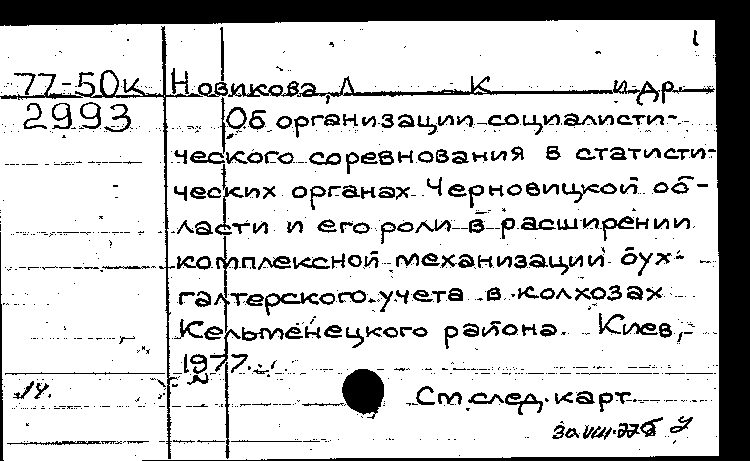 1
77-50к Новикова, Л К и др.
2993 Об организации социалисти-
ческого соревнования в статисти-
ческих органах Черновицкой об-
ласти и его роли в расширении
комплексной механизации бух-
галтерского учета в колхозах
Кельменецкого района. Киев,
1977.
14.
См. след. карт.